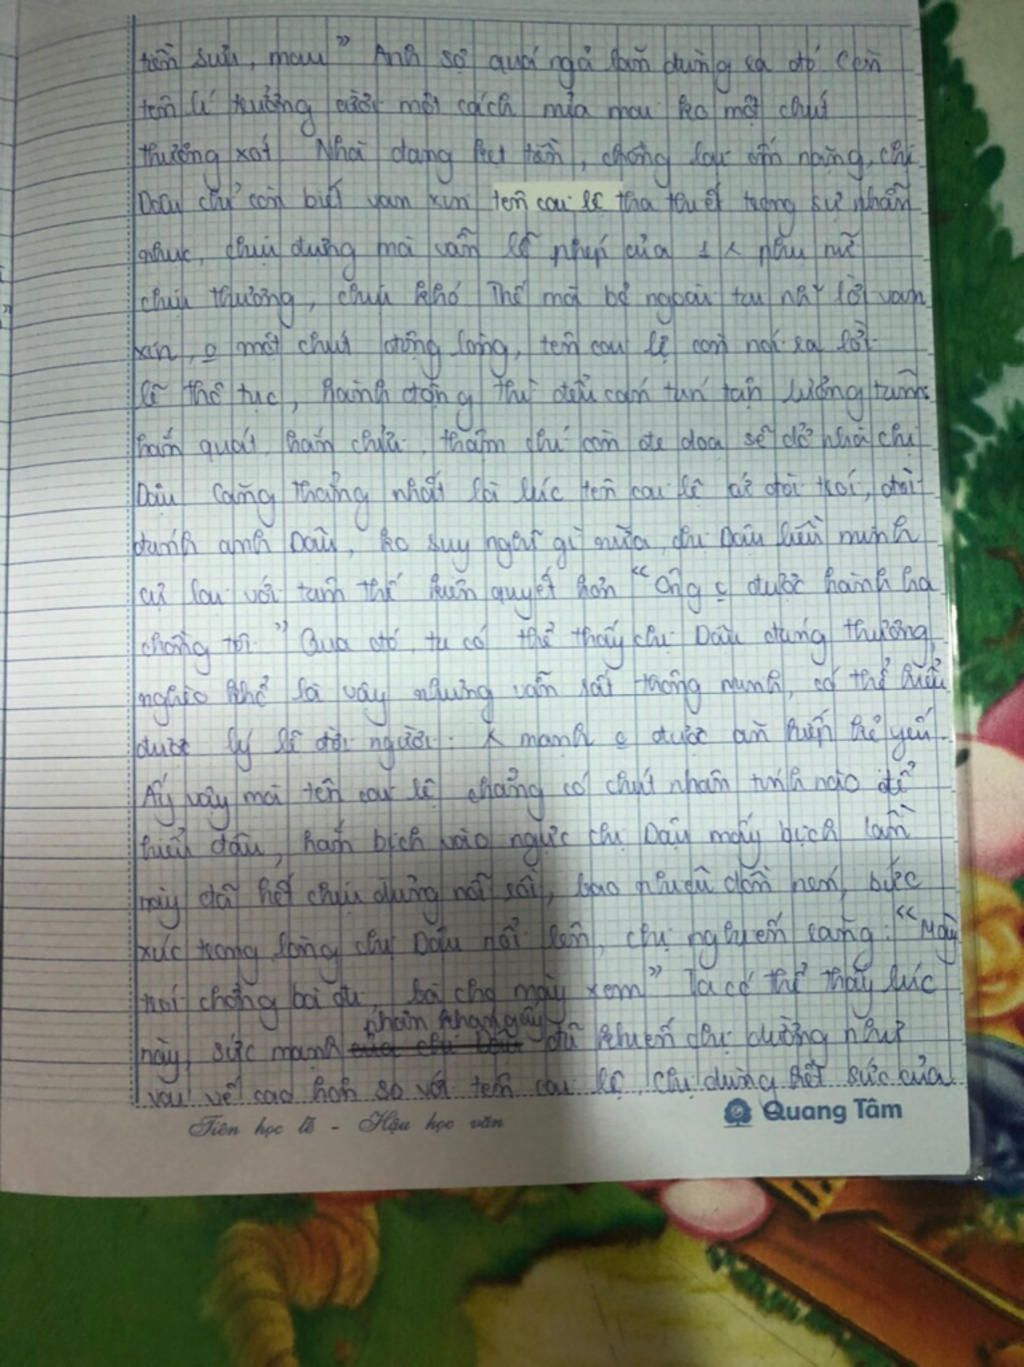 tiền sưu, mau" Anh sợ quá ngã lăn đùng ra đó Còn
tên lí trưởng cười một cách mỉa mai ko một chút
thương xót Nhà đang hết tiền, chồng lại ốm nặng, chị
Dậu chỉ còn biết van xin tên cai lệ tha thiết trong sự nhẫn
nhục, chịu đựng mà vẫn lễ phép của 1 phụ nữ
chịu thương, chịu khó Thế mà bỏ ngoài tai những lời van
xin, o một chút động lòng, tên cai lệ còn nói ra lời
lẽ thô tục, hành động thì đểu cáng tán tận lương tâm
hắn quát, hắn chửi, thậm chí còn đe doạ sẽ dỡ nhà chị
Dậu Căng thẳng nhất là lúc tên cai lệ cứ đòi trói, đòi
đánh anh Dậu, ko suy nghĩ gì nữa, chị Dậu liền mình
cự lại với tư thế kiên quyết hơn "Ông c được hành hạ
chồng tôi" Qua đó, ta có thể thấy chị Dậu đáng thương,
nghèo khổ là vậy nhưng vẫn rất thông minh, có thể hiểu
được lý lẽ đời người. K mạnh c được ăn hiếp kẻ yếu.
Ấy vậy mà tên cai lệ chẳng có chút nhân tính nào để
hiểu đâu, hắn bịch vào ngực chị Dậu mấy bịch lần
này đã hết chịu đựng nổi rồi, bao nhiêu dồn nén, bức
xúc trong lòng chị Dậu nổi lên, chị nghiến răng: "Mày
trói chồng bà đi, bà cho mày xem" Ta có thể thấy lúc
này, sức mạnh phản kháng ấy đã khiến chị dường như
vai vế cao hơn so với tên cai lệ, Chị dùng hết sức của
Tiên học lễ - Hậu học văn
Quang Tâm